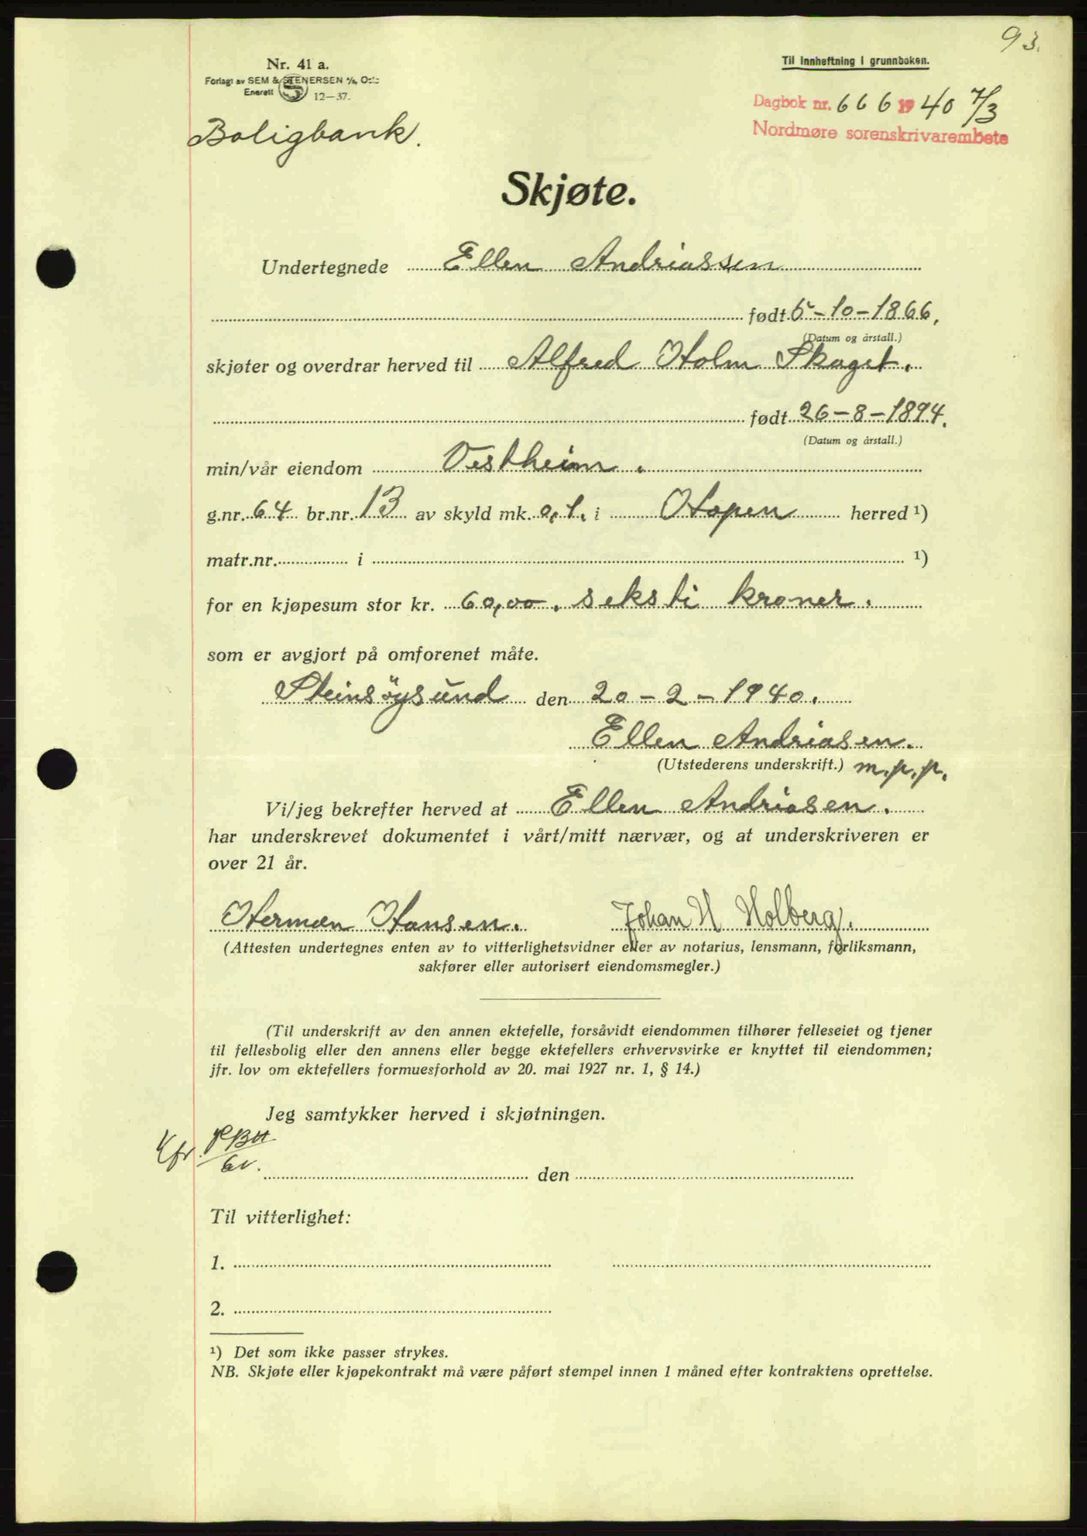 93.
Nr. 41 a.
Forlagt av SEM & STENERSEN A/S, Oslo
Enerett S 12—37.
Til innheftning i grunnboken.
Dagbok nr. 666 1940 7/3
Nordmøre sorenskrivarembete
Boligbank.
Skjøte.
Undertegnede Ellen Andriassen
født 5-10-1866.
(Datum og årstall.)
skjøter og overdrar herved til Alfred Holm Skaget.
født 26-8-1894.
(Datum og årstall.)
min/vår eiendom Vestheim.
g.nr. 64 br.nr. 13 av skyld mk. 0,1. i Hopen herred ¹)
matr.nr. i ¹)
for en kjøpesum stor kr. 60,00. seksti kroner.
som er avgjort på omforenet måte.
Steinsöysund den 20-2-1940.
Ellen Andriasen.
(Utstederens underskrift.) m.p.p.
Vi/jeg bekrefter herved at Ellen Andriasen.
har underskrevet dokumentet i vårt/mitt nærvær, og at underskriveren er
over 21 år.
Herman Hansen. Johan H Holberg.
(Attesten undertegnes enten av to vitterlighetsvidner eller av notarius, lensmann, forliksmann,
sakfører eller autorisert eiendomsmegler.)
(Til underskrift av den annen ektefelle, forsåvidt eiendommen tilhører felleseiet og tjener
til fellesbolig eller den annens eller begge ektefellers erhvervsvirke er knyttet til eiendommen;
jfr. lov om ektefellers formuesforhold av 20. mai 1927 nr. 1, § 14.)
Jeg samtykker herved i skjøtningen.
den
Til vitterlighet:
1.
2.
¹) Det som ikke passer strykes.
NB. Skjøte eller kjøpekontrakt må være påført stempel innen 1 måned efter kontraktens oprettelse.